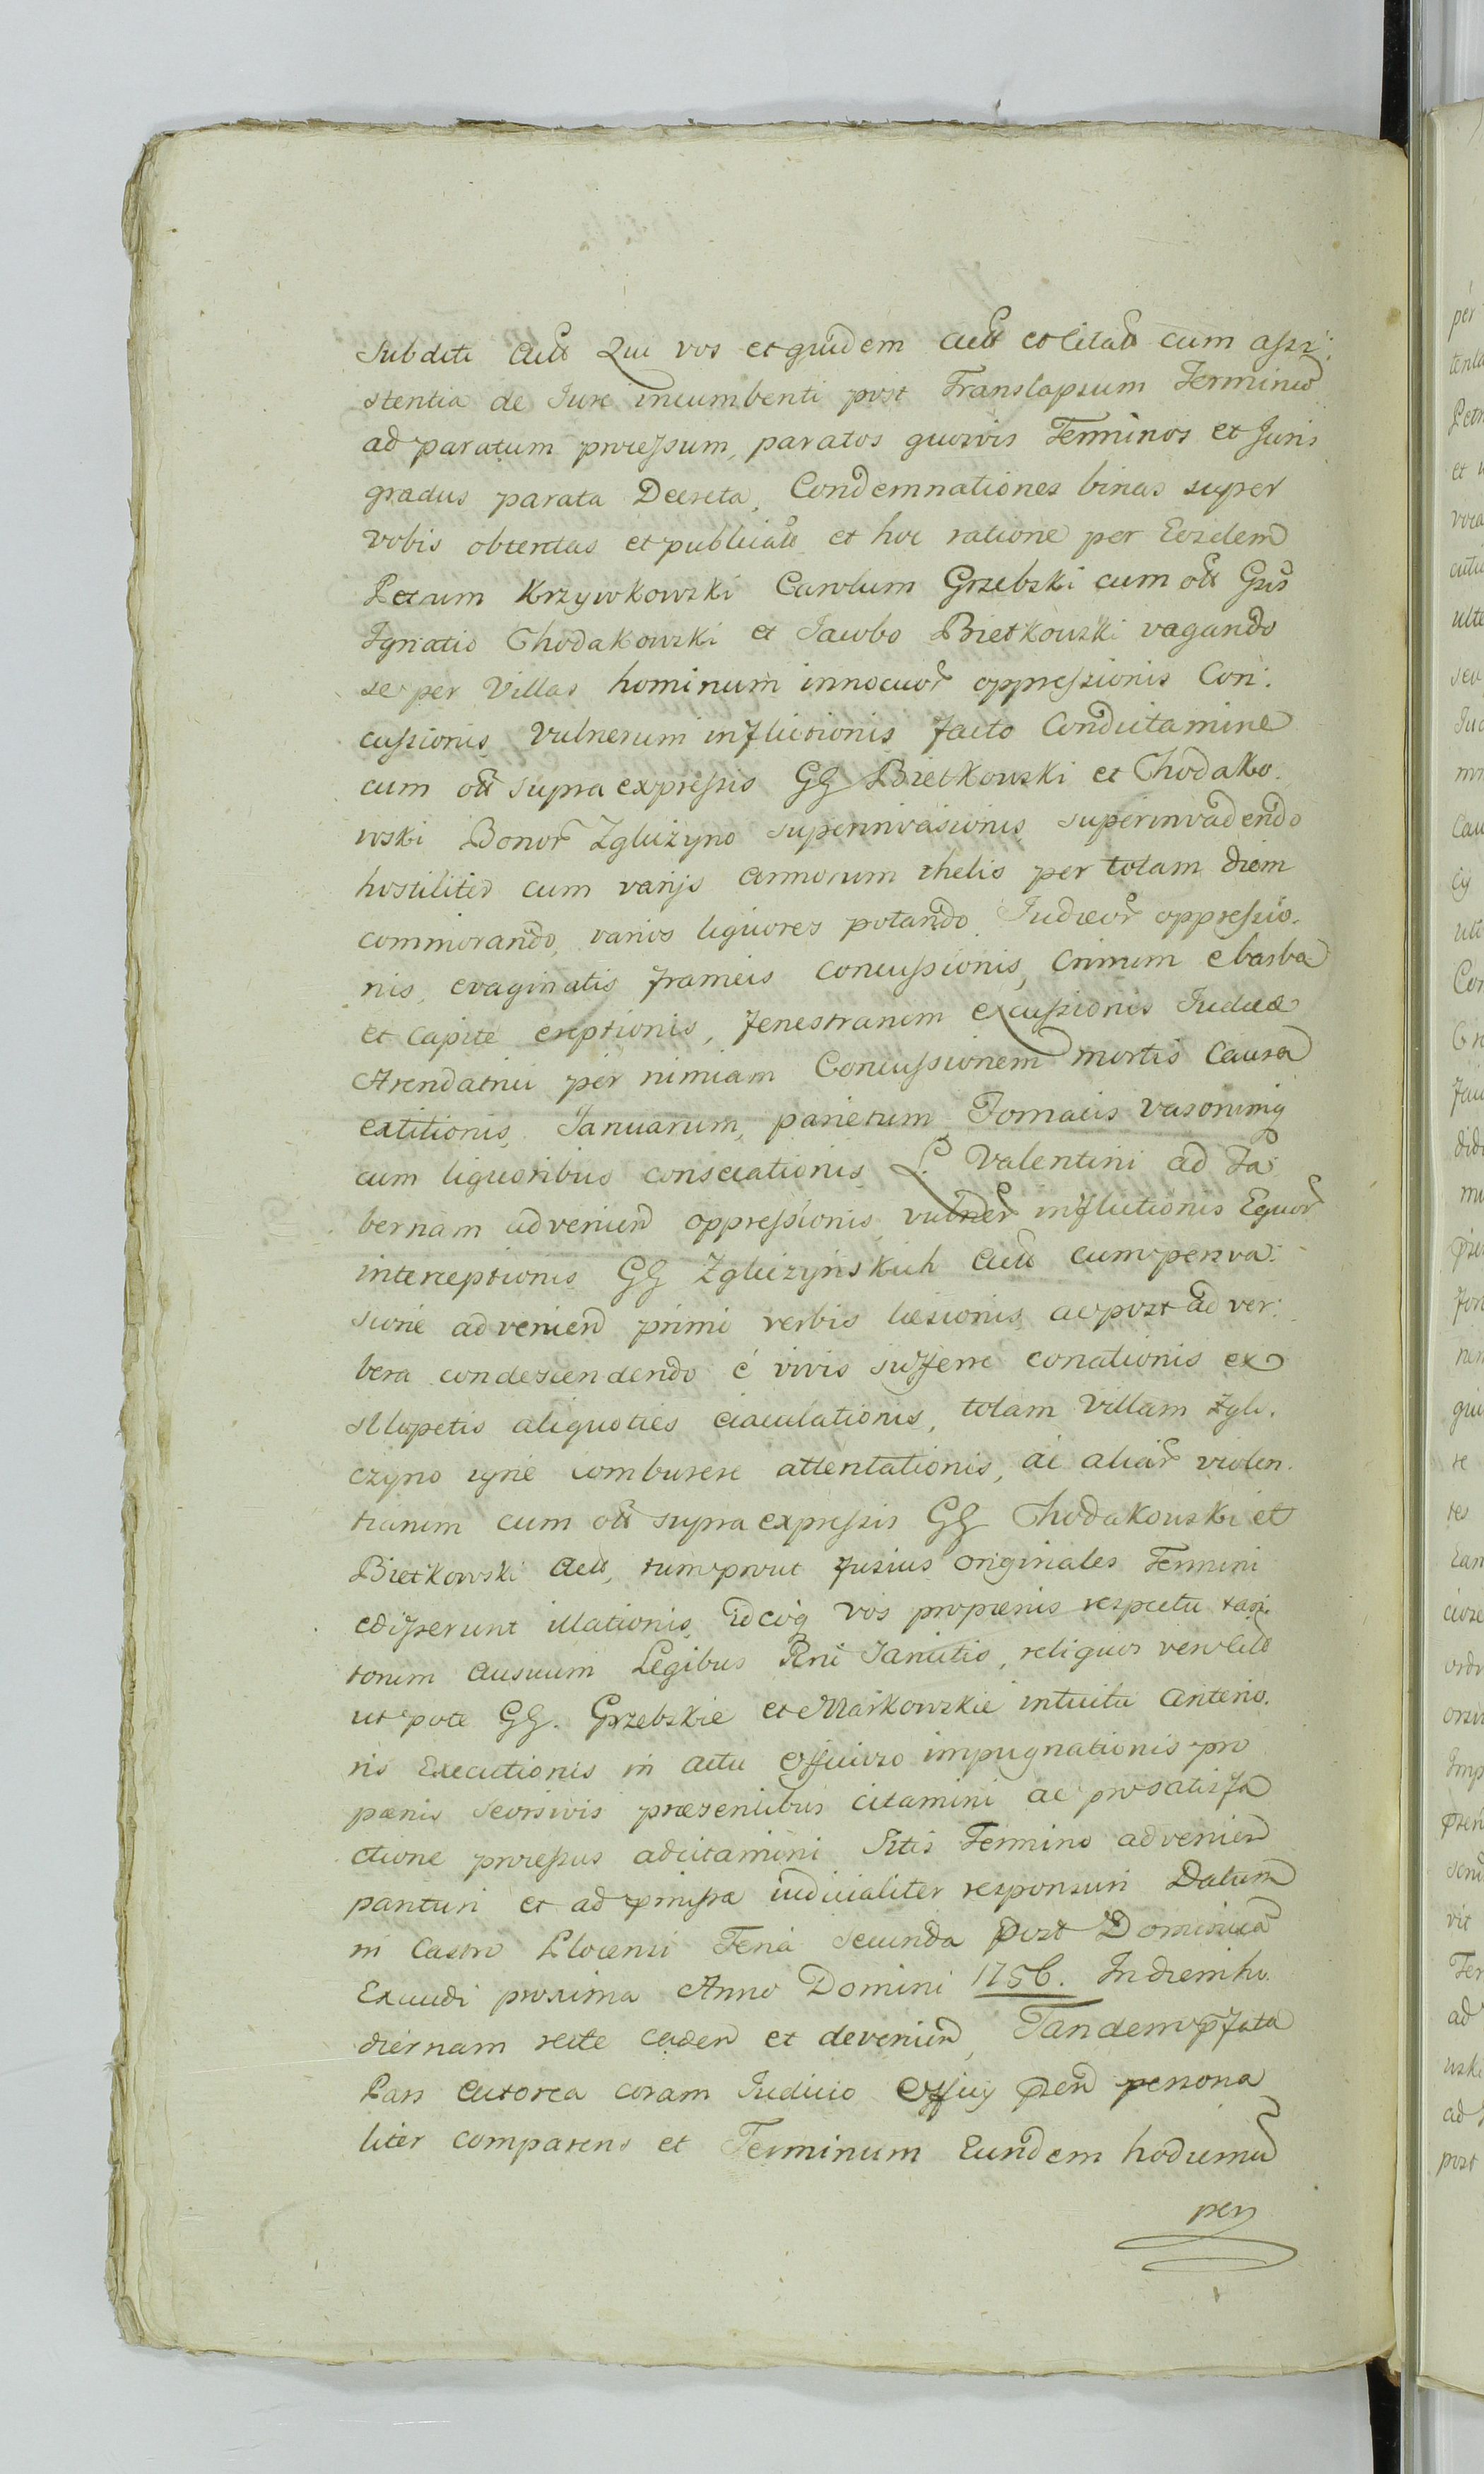 Subditi Act Qui vos et quidem Act et Citati cum assi:
stentia de Jure incumbenti post Translapsum Terminor
ad paratum processum, paratos quosvis Terminos et Juris
gradus parata Decreta, Condemnationes binas super
vobis obtentas et publicat et hoc ratione per Eosdem
Petrum Krzywkowski Carolum Grzebski cum ott Gsis
Ignatio Chodakowski et Jacobo Bietkowski vagando
se per Villas hominum innocuor oppressionis Con:
cussionis Vulnerum inflictionis facto Conductamine
cum ott supra expressis GG Bietkowski et Chodako:
wski Bonor Zgliczyno superinvasionis superinvadendo
hostiliter cum varijs armorum thelis per totam diem
commorando, varios liquores potando Judæor oppressio:
nis, evaginatis frameis concussionis, Crinium e barba
et Capite ereptionis, fenestrarum excussionis Judææ
Arendatrici per nimiam Concussionem mortis Causa
extitionis, Januarum, parietum Fornacis Vasorumq
cum liquoribus consciationis L. Valentini ad Ta:
bernam advenien oppressionis vulner inflictionis Equor
interceptionis GG Zgliczynskich Act cum persva:
sione advenien primi verbis læsionis ac post ad ver:
bera condescendendo é vivis sufferre conationis ex
sklopetis aliquoties eiaculationis, totam Villam Zgli:
czyno igne comburere attentationis, ac aliar violen:
tiarum cum ott supra expressis GG Chodakowski et
Bietkowski Act, tum prout fusius originales Termini
edisserunt illationis idcirq vos pro pœnis respectu tan:
torum ausuum Legibus Rni Sancitis, reliquos vero Cit
ut pote GG. Grzebskie et Markowskie intuitu anterio:
ris Executionis in actu officioso impugnationis pro
pœnis seorsivis præsentibus citamini ac pro satisfa
ctione processus adcitamini Sitis Termino advenien
parituri et ad pmissa iudicialiter responsuri Datum
in Castro Plocensi Feria secunda post Dominica
Exaudi proxima Anno Domini 1756. In diem ho:
diernam recte caden et devenien, Tandem pfata
Pars Actorea coram Judicio Officij psen persona
liter comparens et Terminum Eundem hodiernu
per